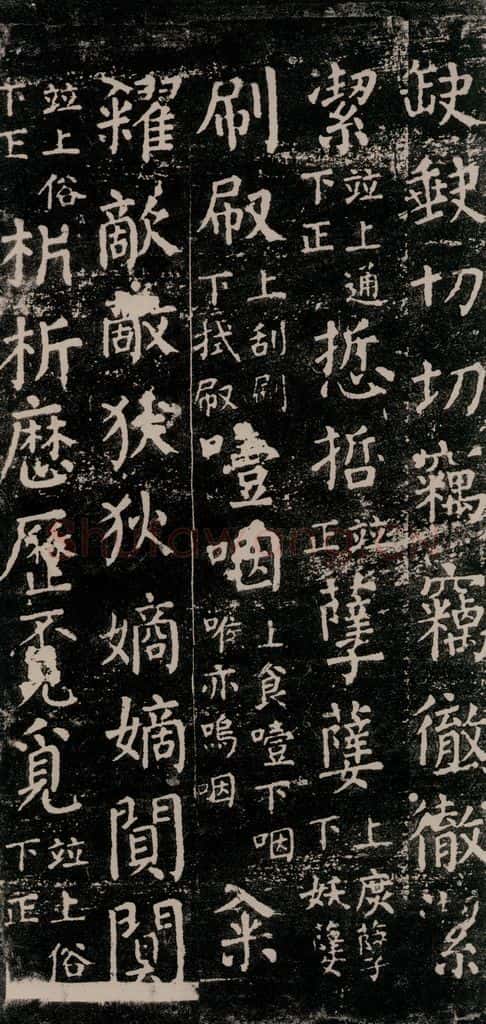 缺𡙇切切竊竊徹徹潔
潔竝上通下正悊哲竝正孽㜸上庶孽下妖㜸
刷㕞上刮刷下拭㕞噎咽上食噎下咽喉亦嗚咽籴
糴敵敵狄狄嫡嫡闃
竝上俗下正析歴歷覔覓竝上俗下正